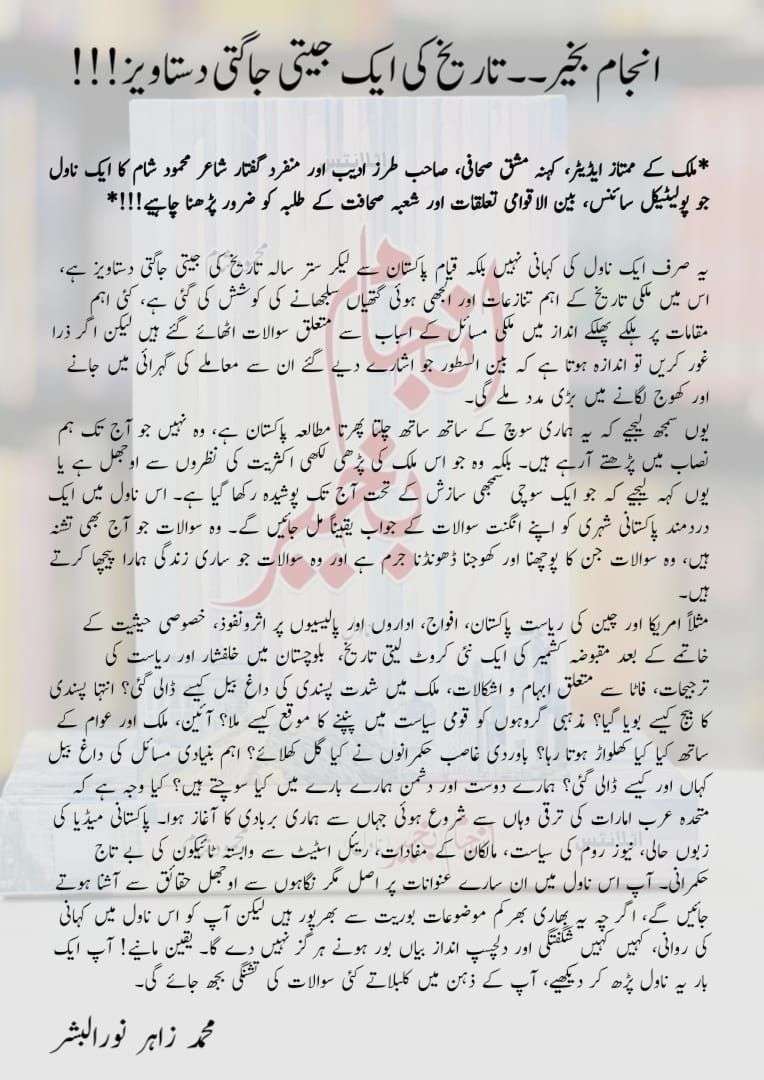 انجام بخیر۔۔ تاریخ کی ایک جیتی جاگتی دستاویز!!!
*ملک کے ممتاز ایڈیٹر، کہنہ مشق صحافی، صاحب طرز ادیب اور منفرد گفتار شاعر محمود شام کا ایک ناول
جو پولیٹیکل سائنس، بین الاقوامی تعلقات اور شعبہ صحافت کے طلبہ کو ضرور پڑھنا چاہیے!!!*
یہ صرف ایک ناول کی کہانی نہیں بلکہ قیام پاکستان سے لیکر ستر سالہ تاریخ کی جیتی جاگتی دستاویز ہے،
اس میں ملکی تاریخ کے اہم تنازعات اور الجھی ہوئی گتھیاں سلجھانے کی کوشش کی گئی ہے، کئی اہم
مقامات پر ہلکے پھلکے انداز میں ملکی مسائل کے اسباب سے متعلق سوالات اٹھائے گئے ہیں لیکن اگر ذرا
غور کریں تو اندازہ ہوتا ہے کہ بین السطور جو اشارے دیے گئے ان سے معاملے کی گہرائی میں جانے
اور کھوج لگانے میں بڑی مدد ملے گی۔
یوں سمجھ لیجیے کہ یہ ہماری سوچ کے ساتھ ساتھ چلتا پھرتا مطالعہ پاکستان ہے، وہ نہیں جو آج تک ہم
نصاب میں پڑھتے آرہے ہیں۔ بلکہ وہ جو اس ملک کی پڑھی لکھی اکثریت کی نظروں سے اوجھل ہے یا
یوں کہہ لیجیے کہ جو ایک سوچی سمجھی سازش کے تحت آج تک پوشیدہ رکھا گیا ہے۔ اس ناول میں ایک
دردمند پاکستانی شہری کو اپنے انگنت سوالات کے جواب یقیناً مل جائیں گے۔ وہ سوالات جو آج بھی تشنہ
ہیں، وہ سوالات جن کا پوچھنا اور کھوجنا ڈھونڈنا جرم ہے اور وہ سوالات جو ساری زندگی ہمارا پیچھا کرتے
ہیں۔
مثلاً امریکا اور چین کی ریاست پاکستان، افواج، اداروں اور پالیسیوں پر اثرونفوذ، خصوصی حیثیت کے
خاتمے کے بعد مقبوضہ کشمیر کی ایک نئی کروٹ لیتی تاریخ، بلوچستان میں خلفشار اور ریاست کی
ترجیحات، فاٹا سے متعلق ابہام و اشکالات، ملک میں شدت پسندی کی داغ بیل کیسے ڈالی گئی؟ انتہا پسندی
کا بیج کیسے بویا گیا؟ مذہبی گروہوں کو قومی سیاست میں پنپنے کا موقع کیسے ملا؟ آئین، ملک اور عوام کے
ساتھ کیا کیا کھلواڑ ہوتا رہا؟ باوردی غاصب حکمرانوں نے کیا گل کھلائے؟ اہم بنیادی مسائل کی داغ بیل
کہاں اور کیسے ڈالی گئی؟ ہمارے دوست اور دشمن ہمارے بارے میں کیا سوچتے ہیں؟ کیا وجہ ہے کہ
متحدہ عرب امارات کی ترقی وہاں سے شروع ہوئی جہاں سے ہماری بربادی کا آغاز ہوا۔ پاکستانی میڈیا کی
زبوں حالی، نیوز روم کی سیاست، مالکان کے مفادات، ریئل اسٹیٹ سے وابستہ ٹائیکون کی بے تاج
حکمرانی۔ آپ اس ناول میں ان سارے عنوانات پر اصل مگر نگاہوں سے اوجھل حقائق سے آشنا ہوتے
جائیں گے، اگر چہ یہ بھاری بھرکم موضوعات بوریت سے بھرپور ہیں لیکن آپ کو اس ناول میں کہانی
کی روانی، کہیں کہیں شگفتگی اور دلچسپ انداز بیاں بور ہونے ہرگز نہیں دے گا۔ یقین مانیے! آپ ایک
بار یہ ناول پڑھ کر دیکھیے، آپ کے ذہن میں کلبلاتے کئی سوالات کی تشنگی بجھ جائے گی۔
محمد زاہر نورالبشر
انجام
بخیر